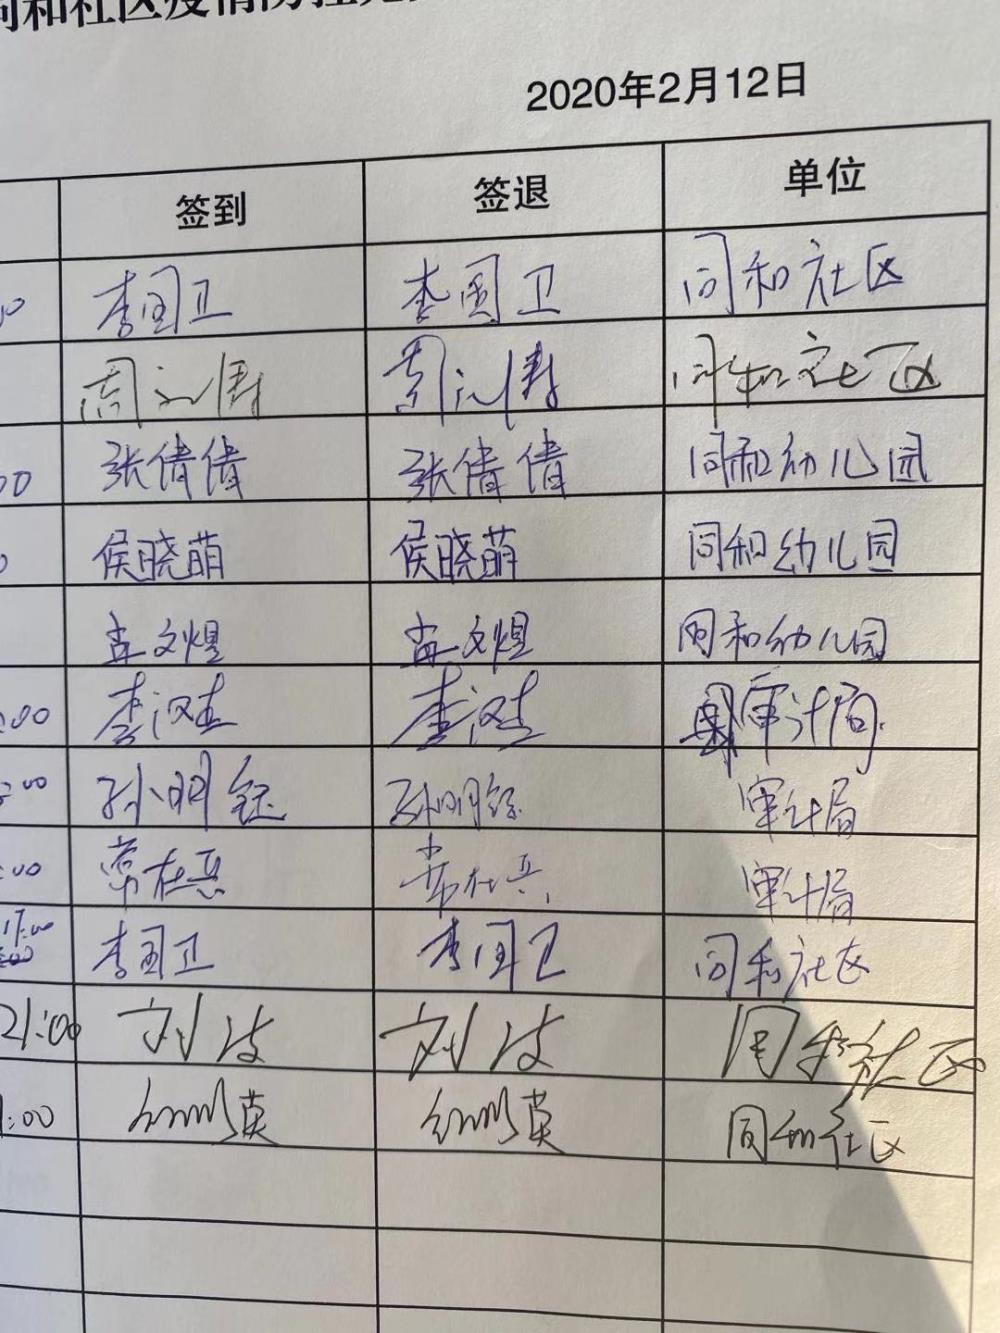 同和社区疫情防控
2020年2月12日
签到 签退 单位
李国卫 李国卫 同和社区
周 涛 周 涛 同和社区
:00 张倩倩 张倩倩 同和幼儿园
侯晓萌 侯晓萌 同和幼儿园
文煜 文煜 同和幼儿园
:00 李汉杰 李汉杰 审计局
:00 孙明钰 孙明钰 审计局
:00 常在兵 常在兵 审计局
17:00 李国卫 李国卫 同和社区
21:00 刘波 刘波 同和社区
:00 英 英 同和社区